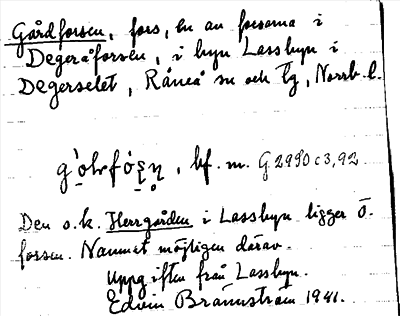 Gårdforsen, fors, en av forsarna i
Degeråforsen, i byn Lassbyn i
Degerselet, Råneå sn och tg, Norrb. l.
bf. m. G 2990 c 3, 92
Den s. k. Herrgården i Lassbyn ligger ö.
forsen. Namnet möjligen därav.
Uppgiften från Lassbyn.
Edvin Brännström 1941.